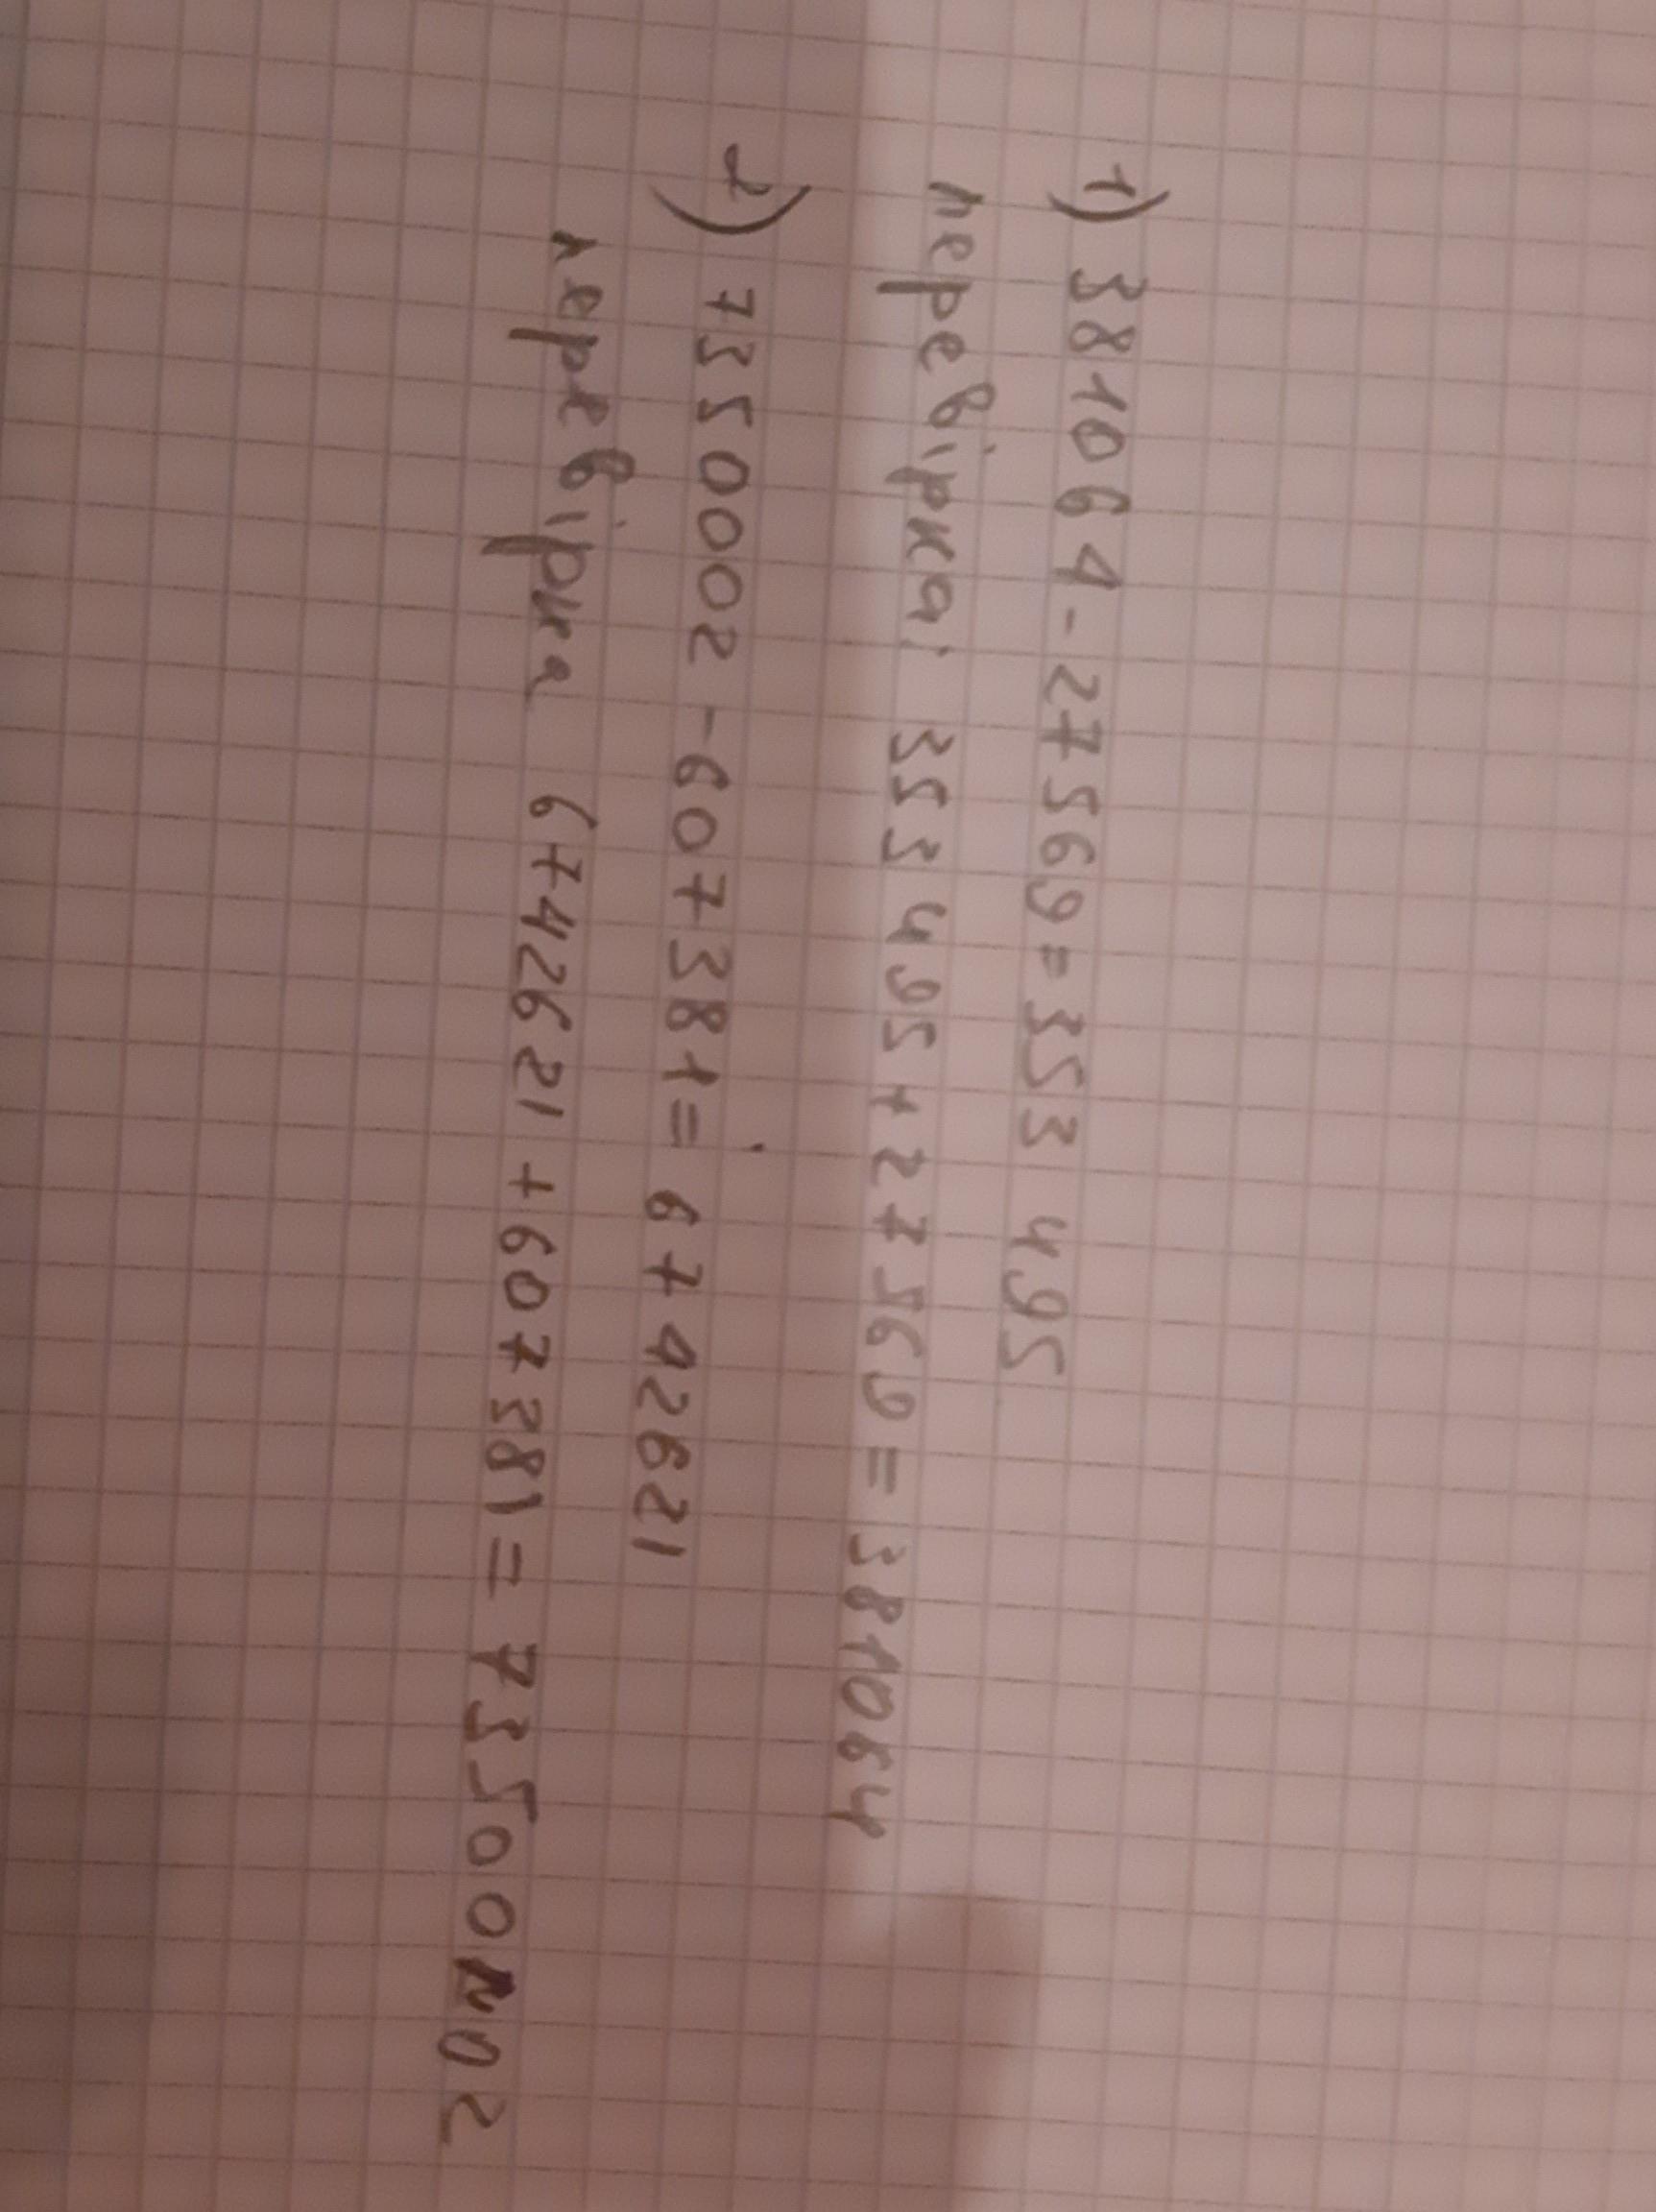 1) 381064-27569=353 495
перевірка: 353 495+27569=381064
2) 7350002-607381=6742621
перевірка 6742621+607381=7350002